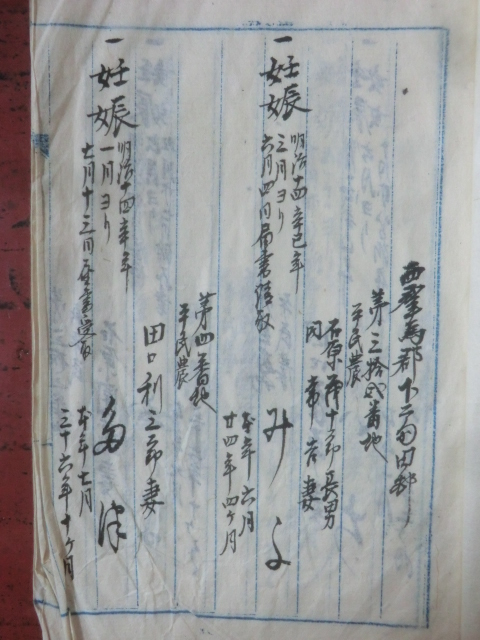 西群馬郡下
第三拾弐番地
平民農
石原 十郎長男
同 吉妻
一妊娠 明治十四辛巳年
三月ヨリ
六月四日届書
み
本年六月
廿四年四ヶ月
第四番地
平民農
田口利三郎妻
一妊娠 明治十四辛年
一月ヨリ
七月十三日
本年七月
三十六年十ヶ月